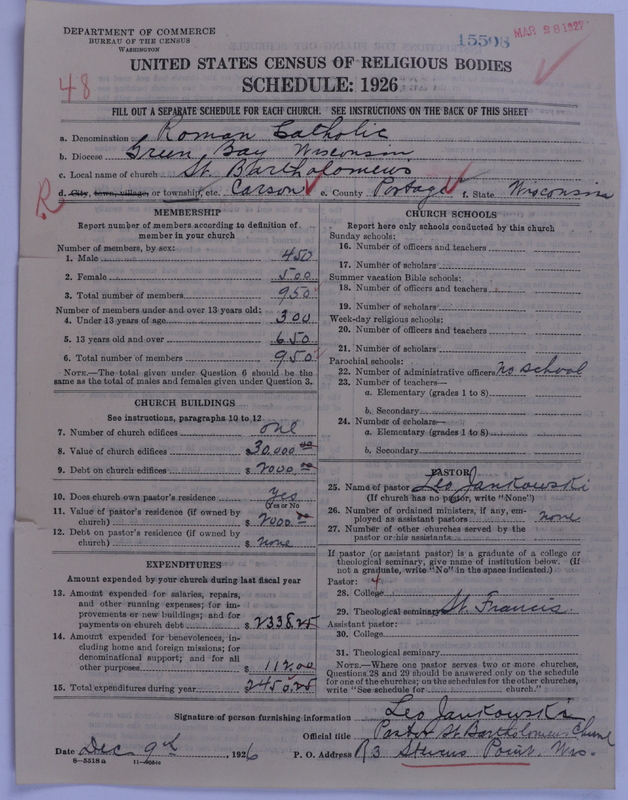 DEPARTMENT OF COMMERCE
BUREAU OF THE CENSUS
WASHINGTON
15508 MAR 28 1927
UNITED STATES CENSUS OF RELIGIOUS BODIES
48
SCHEDULE: 1926
FILL OUT A SEPARATE SCHEDULE FOR EACH CHURCH. SEE INSTRUCTIONS ON THE BACK OF THIS SHEET
a. Denomination Roman Catholic
b. Diocese Green Bay Wisconsin
c. Local name of church St. Bartholomews
R d. City, town, village, or township, etc. Carson e. County Portage f. State Wisconsin
MEMBERSHIP
Report number of members according to definition of
member in your church
Number of members, by sex:
1. Male 450
2. Female 500
3. Total number of members 950
Number of members under and over 13 years old:
4. Under 13 years of age 300
5. 13 years old and over 650
6. Total number of members 950
NOTE.—The total given under Question 6 should be the
same as the total of males and females given under Question 3.
CHURCH BUILDINGS
See instructions, paragraphs 10 to 12
7. Number of church edifices one
8. Value of church edifices $30,000 00
9. Debt on church edifices $ 2000 00
10. Does church own pastor's residence Yes
(Yes or No)
11. Value of pastor's residence (if owned by
church) $ 2000 00
12. Debt on pastor's residence (if owned by
church) $ none
EXPENDITURES
Amount expended by your church during last fiscal year
13. Amount expended for salaries, repairs,
and other running expenses; for im-
provements or new buildings; and for
payments on church debt $ 2338.25
14. Amount expended for benevolences, in-
cluding home and foreign missions; for
denominational support; and for all
other purposes $ 112.00
15. Total expenditures during year $ 2450.25
CHURCH SCHOOLS
Report here only schools conducted by this church
Sunday schools:
16. Number of officers and teachers
17. Number of scholars
Summer vacation Bible schools:
18. Number of officers and teachers
19. Number of scholars
Week-day religious schools:
20. Number of officers and teachers
21. Number of scholars
Parochial schools:
22. Number of administrative officers no school
23. Number of teachers—
a. Elementary (grades 1 to 8)
b. Secondary
24. Number of scholars—
a. Elementary (grades 1 to 8)
b. Secondary
PASTOR
25. Name of pastor Leo Jankowski
(If church has no pastor, write "None")
26. Number of ordained ministers, if any, em-
ployed as assistant pastors none
27. Number of other churches served by the
pastor or his assistants
If pastor (or assistant pastor) is a graduate of a college or
theological seminary, give name of institution below. (If
not a graduate, write "No" in the space indicated.)
Pastor: 4
28. College
29. Theological seminary St. Francis
Assistant pastor:
30. College
31. Theological seminary
NOTE.—Where one pastor serves two or more churches,
Questions 28 and 29 should be answered only on the schedule
for one of the churches; on the schedules for the other churches,
write "See schedule for church."
Signature of person furnishing information Leo Jankowski
Official title Pastor St. Bartholomews Church
Date Dec 9th, 1926 P. O. Address R 3 Stevens Point, Wis.
8—5518 a